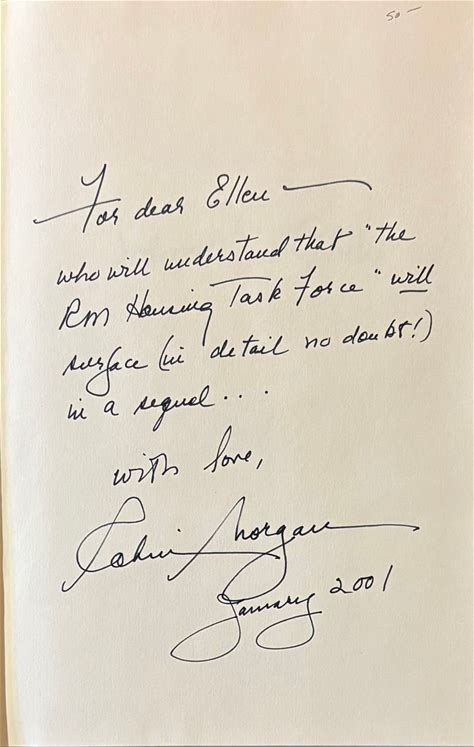 50-
For dear Ellen —
who will understand that "the
RM Housing Task Force" will
surface (in detail no doubt!)
in a sequel...
with love,
Robin Morgan
January 2001